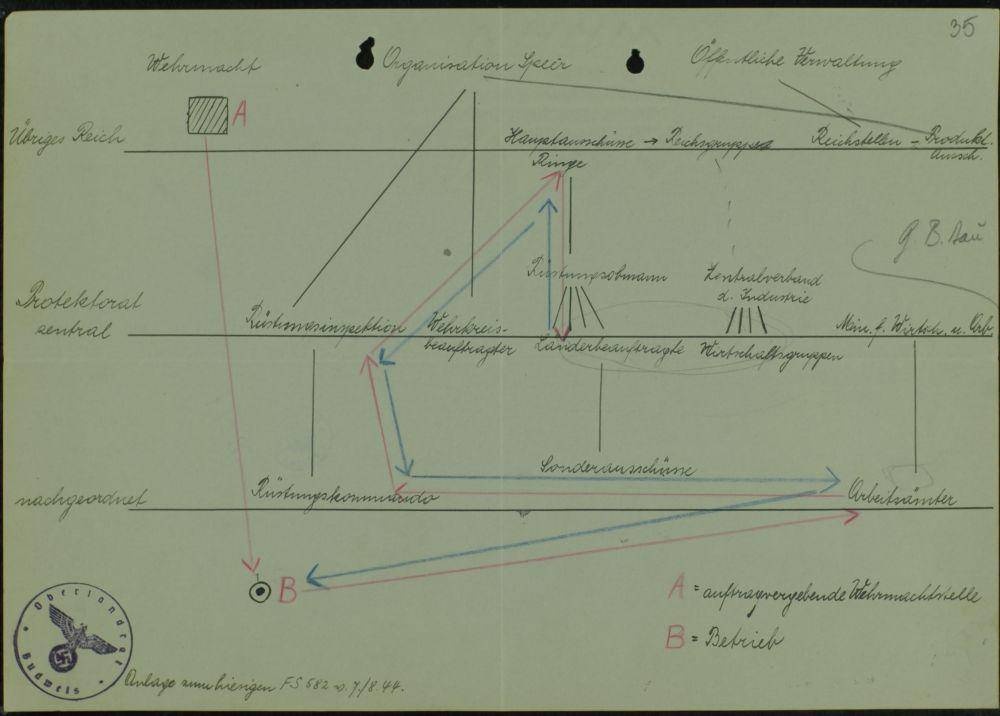 35
Wehrmacht
Organisation Speer
Öffentliche Verwaltung
A
Übriges Reich
Hauptausschüsse → Reichsgruppen
Ringe
Reichstellen – Produkt.
Aussch.
G. B. Bau
Protektorat
zentral
Rüstungsobmann
Zentralverband
d. Industrie
Rüstungsinspektion
Wehrkreis-
beauftragter
Länderbeauftragte
Wirtschaftsgruppen
Min. f. Wirtsch. u. Arb.
Sonderausschüsse
nachgeordnet
Rüstungskommando
Arbeitsämter
B
A = auftragvergebende Wehrmachtstelle
B = Betrieb
Oberlandrat
Budweis
Anlage zum hiesigen FS 682 v. 7./8.44.